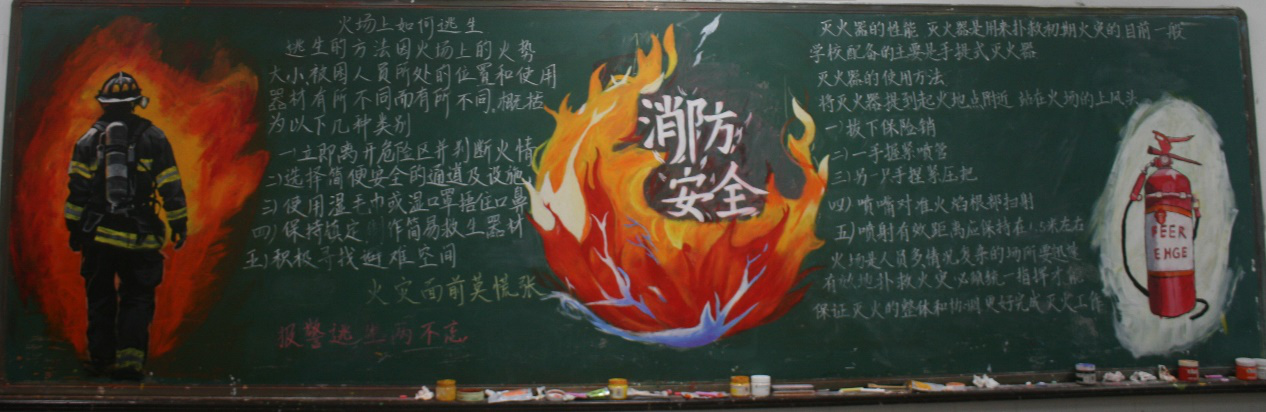 火场上如何逃生
逃生的方法因火场上的火势
大小被困人员所处的位置和使用
器材有所不同而有所不同,概括
为以下几种类别
一)立即离开危险区并判断火情
二)选择简便安全的通道及设施
三)使用湿毛巾或湿口罩捂住口鼻
四)保持镇定 作简易救生器材
五)积极寻找避难空间
火灾面前莫慌张
报警逃生两不忘
消防
安全
灭火器的性能 灭火器是用来扑救初期火灾的目前一般
学校配备的主要是手提式灭火器
灭火器的使用方法
将灭火器提到起火地点附近 站在火场的上风头
一)拔下保险销
二)一手握紧喷管
三)另一只手捏紧压把
四)喷嘴对准火焰根部扫射
五)喷射有效距离应保持在1.5米左右
火场是人员多情况复杂的场所要迅速
有 地扑救火灾必须统一指挥才能
保证灭火的整体和协调更好完成灭火工作
EER
EHGE